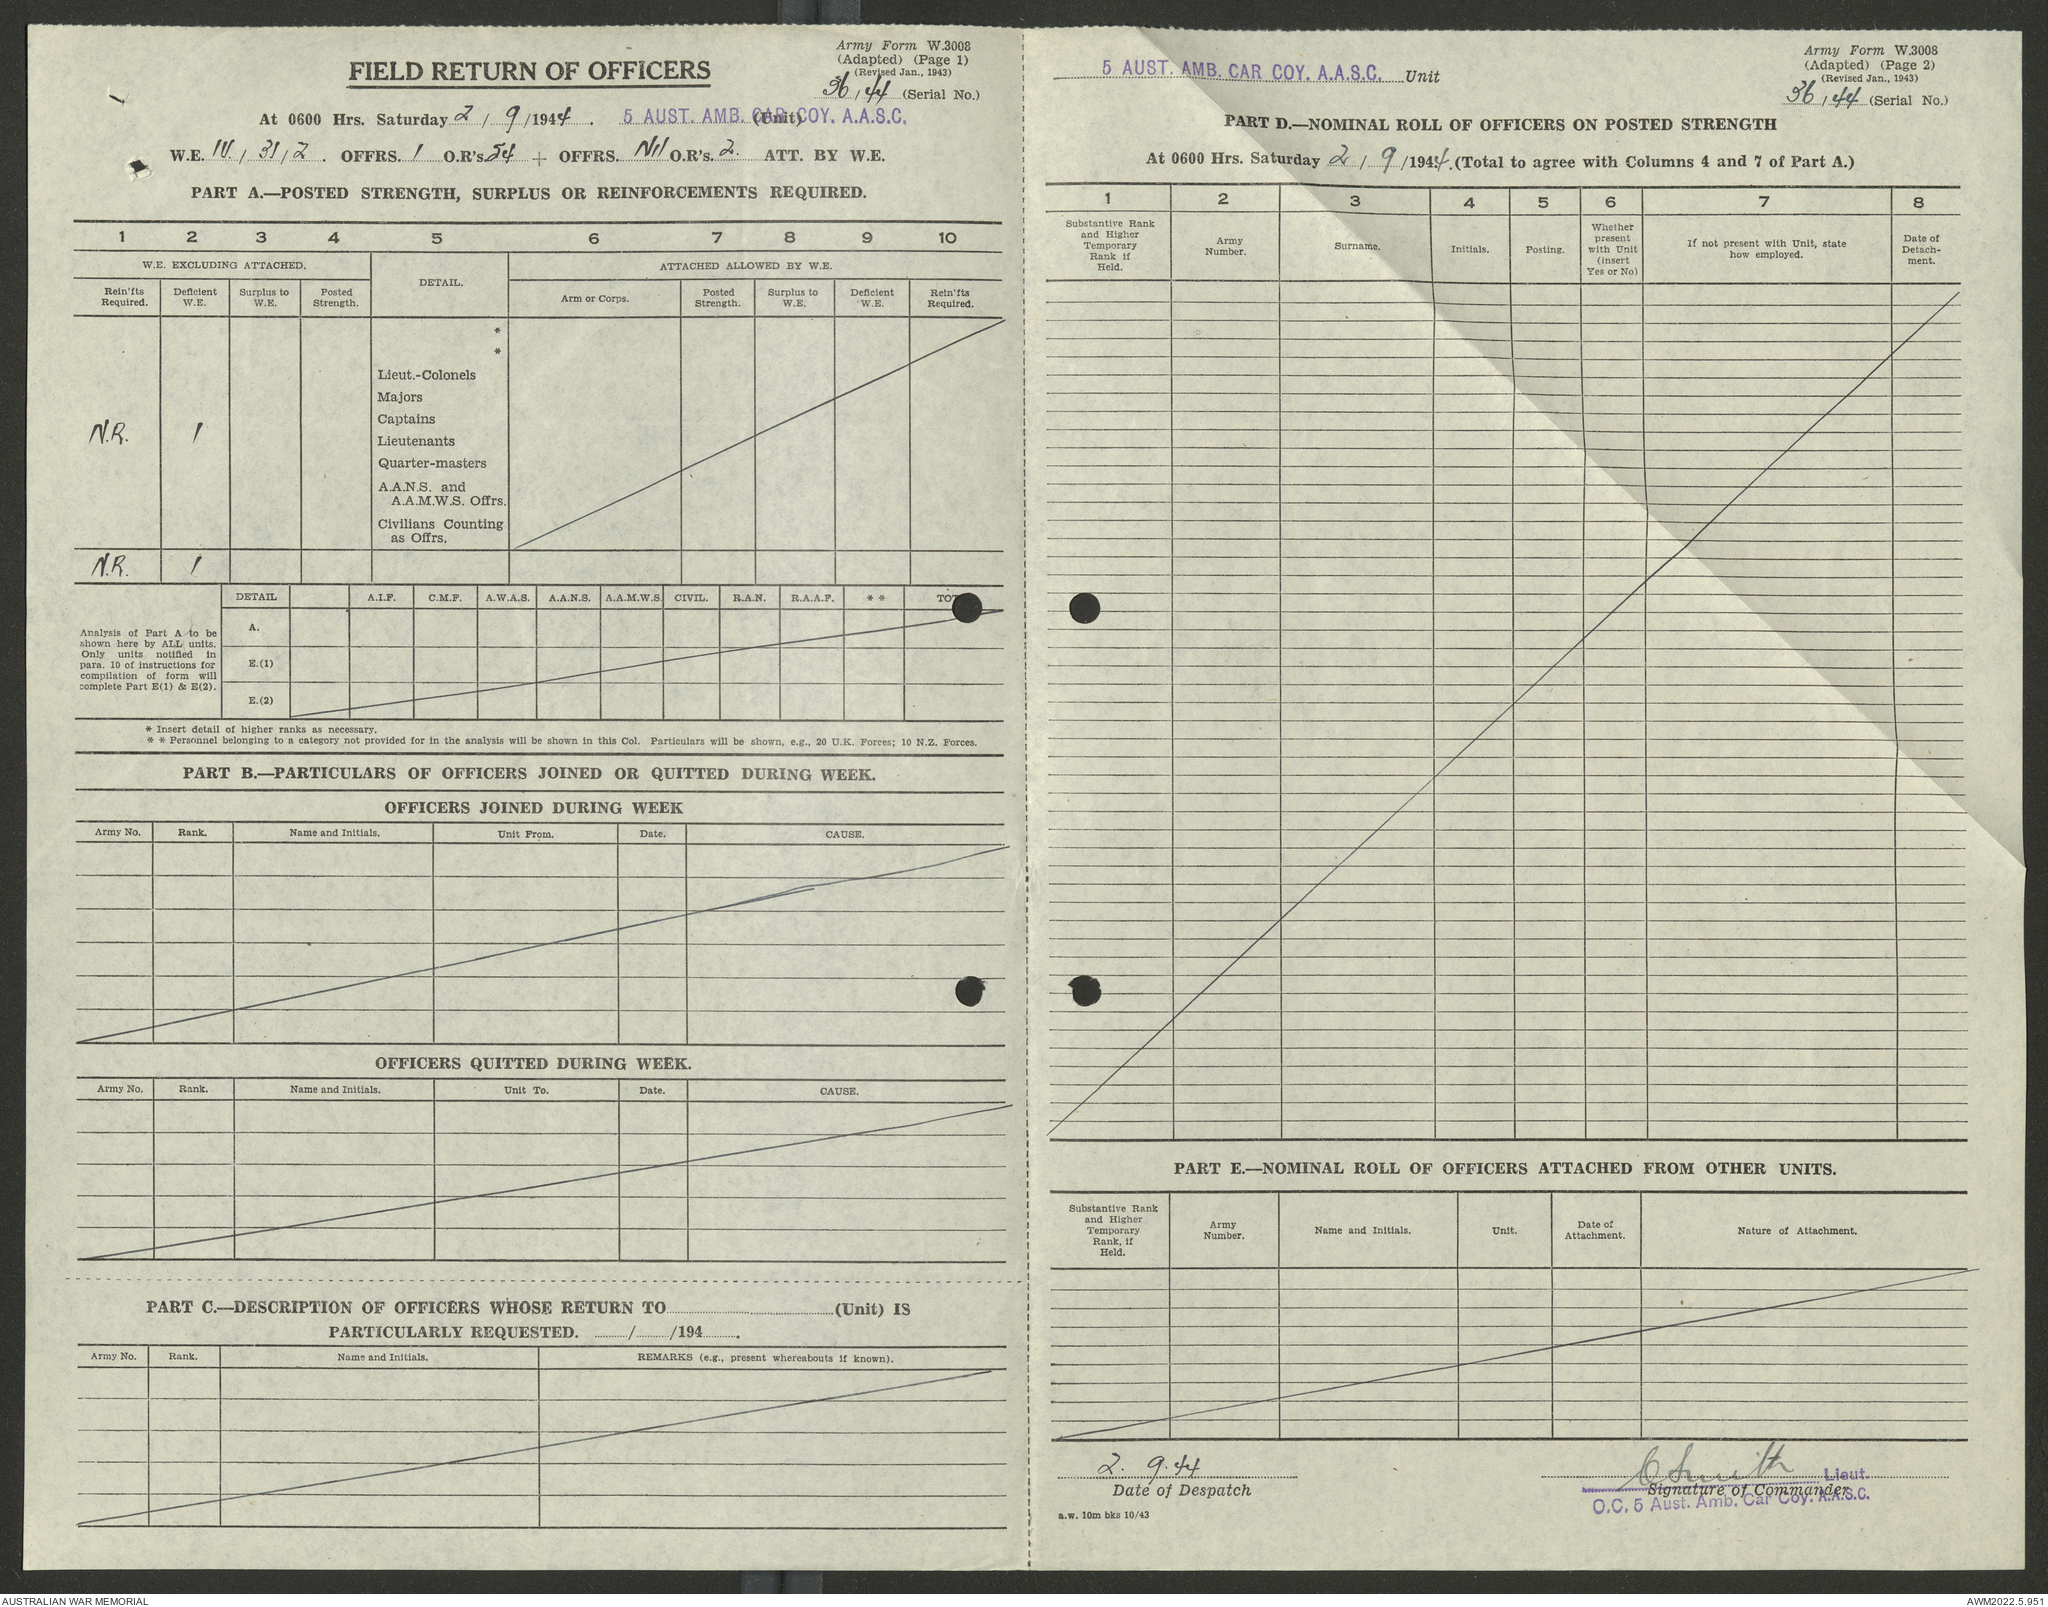 Army Form W.3008
(Adapted) (Page 1)
(Revised Jan., 1943)
36/44 (Serial No.)
FIELD RETURN OF OFFICERS
At 0600 Hrs. Saturday 2/9/1944. 5 AUST. AMB. CAR COY. A.A.S.C. (Unit)
W.E. IV/31/2. OFFRS. 1 O.R's 54 + OFFRS. Nil O.R's. 2. ATT. BY W.E.
PART A.—POSTED STRENGTH, SURPLUS OR REINFORCEMENTS REQUIRED.
1 2 3 4 5 6 7 8 9 10
W.E. EXCLUDING ATTACHED. DETAIL. ATTACHED ALLOWED BY W.E.
Rein'fts Required. Deficient W.E. Surplus to W.E. Posted Strength. Arm or Corps. Posted Strength. Surplus to W.E. Deficient W.E. Rein'fts Required.
*
*
Lieut.-Colonels
Majors
Captains
N.R. 1 Lieutenants
Quarter-masters
A.A.N.S. and
A.A.M.W.S. Offrs.
Civilians Counting
as Offrs.
N.R. 1
DETAIL A.I.F. C.M.F. A.W.A.S. A.A.N.S. A.A.M.W.S. CIVIL. R.A.N. R.A.A.F. * * TOT
A.
E.(1)
E.(2)
Analysis of Part A to be
shown here by ALL units.
Only units notified in
para. 10 of instructions for
compilation of form will
complete Part E(1) & E(2).
* Insert detail of higher ranks as necessary.
* * Personnel belonging to a category not provided for in the analysis will be shown in this Col. Particulars will be shown, e.g., 20 U.K. Forces; 10 N.Z. Forces.
PART B.—PARTICULARS OF OFFICERS JOINED OR QUITTED DURING WEEK.
OFFICERS JOINED DURING WEEK
Army No. Rank. Name and Initials. Unit From. Date. CAUSE.
OFFICERS QUITTED DURING WEEK.
Army No. Rank. Name and Initials. Unit To. Date. CAUSE.
PART C.—DESCRIPTION OF OFFICERS WHOSE RETURN TO (Unit) IS
PARTICULARLY REQUESTED. / /194 .
Army No. Rank. Name and Initials. REMARKS (e.g., present whereabouts if known).
5 AUST. AMB. CAR COY. A.A.S.C. Unit
Army Form W.3008
(Adapted) (Page 2)
(Revised Jan., 1943)
36/44 (Serial No.)
PART D.—NOMINAL ROLL OF OFFICERS ON POSTED STRENGTH
At 0600 Hrs. Saturday 2/9/1944. (Total to agree with Columns 4 and 7 of Part A.)
1 2 3 4 5 6 7 8
Substantive Rank and Higher Temporary Rank if Held. Army Number. Surname. Initials. Posting. Whether present with Unit (insert Yes or No) If not present with Unit, state how employed. Date of Detach-ment.
PART E.—NOMINAL ROLL OF OFFICERS ATTACHED FROM OTHER UNITS.
Substantive Rank and Higher Temporary Rank, if Held. Army Number. Name and Initials. Unit. Date of Attachment. Nature of Attachment.
2. 9.44
Date of Despatch
C Smith Lieut.
Signature of Commander
O.C. 5 Aust. Amb. Car Coy. A.A.S.C.
a.w. 10m bks 10/43
AUSTRALIAN WAR MEMORIAL
AWM2022.5.951